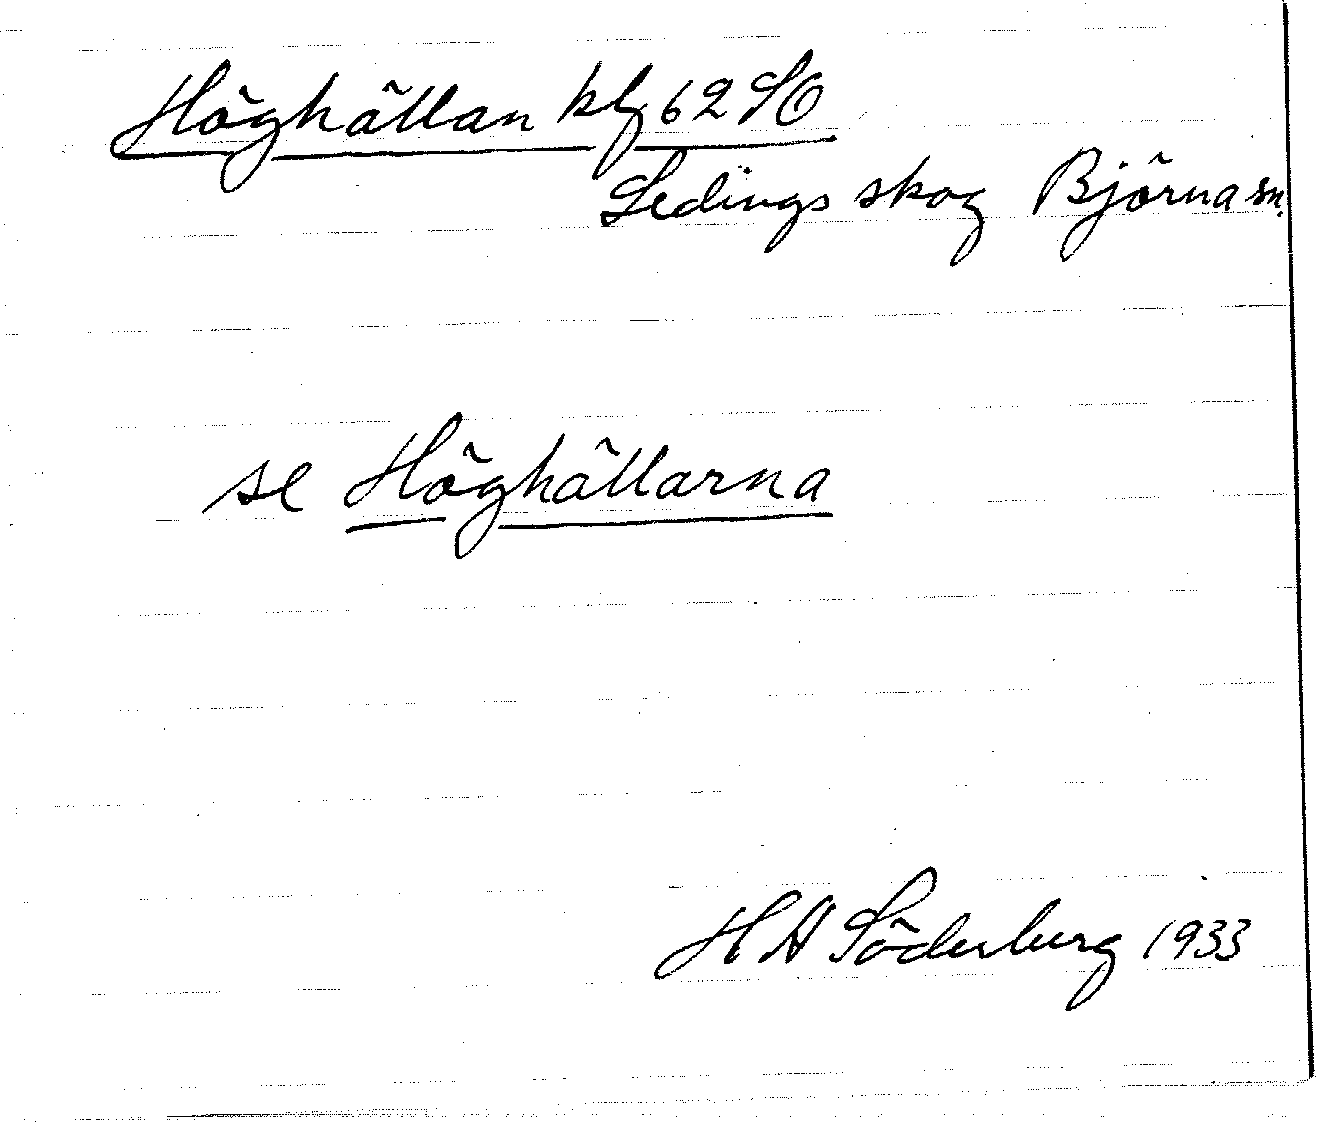 Höghällan klf 62 SO
Ledings skog Björna sn.
se Höghällarna
H A Söderberg 1933